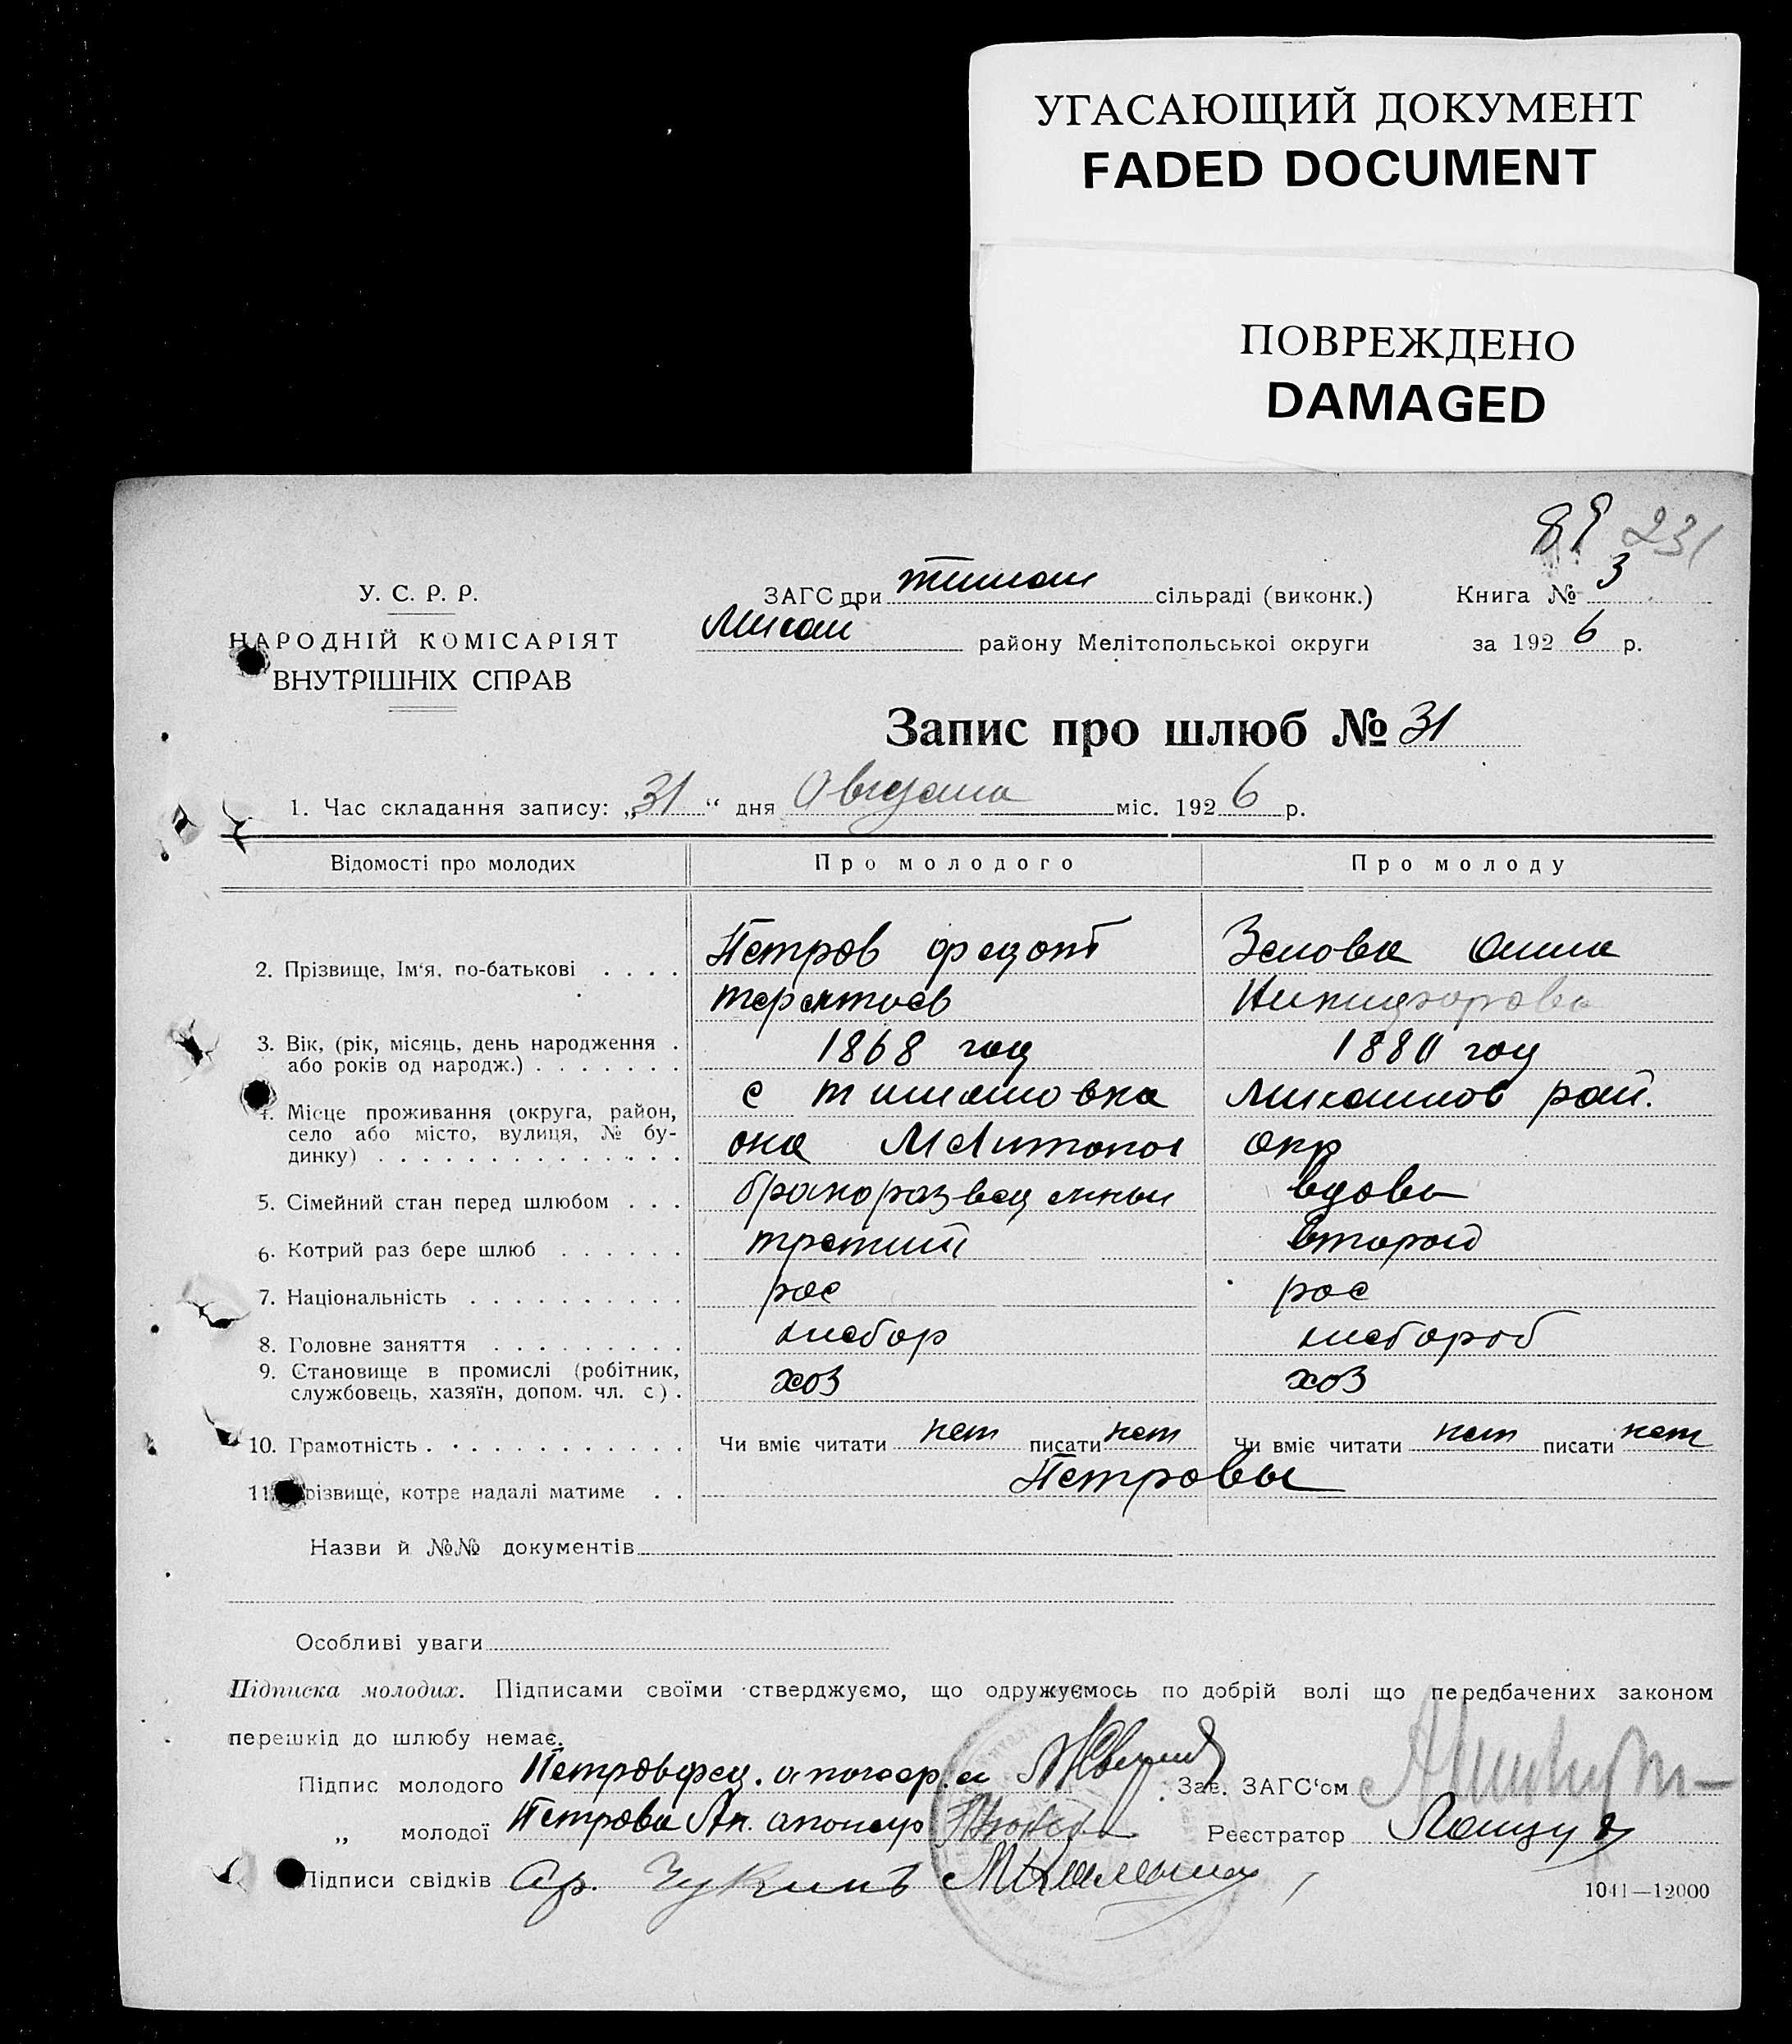 УГАСАЮЩИЙ ДОКУМЕНТ
FADED DOCUMENT
ПОВРЕЖДЕНО
DAMAGED
89 231
У. С. Р. Р.
НАРОДНІЙ КОМІСАРІЯТ
ВНУТРІШНІХ СПРАВ
ЗАГС при тимош сільраді (виконк.) Книга № 3
Михай району Мелітопольскої округи за 1926 р.
Запис про шлюб № 31
1. Час складання запису: „31“ дня Августа міс. 1926 р.
Відомості про молодих Про молодого Про молоду
2. Прізвище, Ім'я, по-батькові . . . . Петров федот Зенова Анна
терентиев Никифорова
3. Вік, (рік, місяць, день народження . 1868 год 1880 год
або років од народж.) . . . . . . .
4. Місце проживання (округа, район, с тимошовка Михайлов рай.
село або місто, вулиця, № бу- она Мелитопол окр
динку) . . . . . . . . . . . . . .
5. Сімейний стан перед шлюбом . . . бракоразведенный вдова
6. Котрий раз бере шлюб . . . . . . третий второй
7. Національність . . . . . . . . . . рос рос
8. Головне заняття . . . . . . . . . хлебор хлебороб
9. Становище в промислі (робітник, хоз хоз
службовець, хазяїн, допом. чл. с) .
10. Грамотність . . . . . . . . . . . . Чи вміє читати нет писати нет Чи вміє читати нет писати нет
11. Прізвище, котре надалі матиме . . Петровы
Назви й №№ документів
Особливі уваги
Підписка молодих. Підписами своїми стверджуємо, що одружуємось по добрій волі що передбачених законом
перешкід до шлюбу немає.
Підпис молодого Петров фед. Зав. ЗАГС'ом
„ молодої Петрова Ан. Реєстратор
Підписи свідків
1041—12000